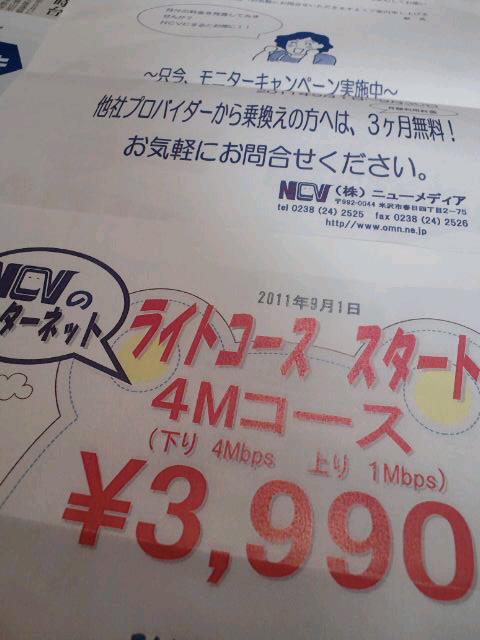 NCVにするとお得に!!
～只今、モニターキャンペーン実施中～
他社プロバイダーから乗換えの方へは、3ヶ月無料！
お気軽にお問合せください。
NCV (株) ニューメディア
〒992-0044 米沢市春日四丁目2-75
tel 0238 (24) 2525 fax 0238 (24) 2526
http//www.omn.ne.jp
NCVの
ターネット
2011年9月1日
ライトコース スタート
4Mコース
(下り 4Mbps 上り 1Mbps)
¥3,990